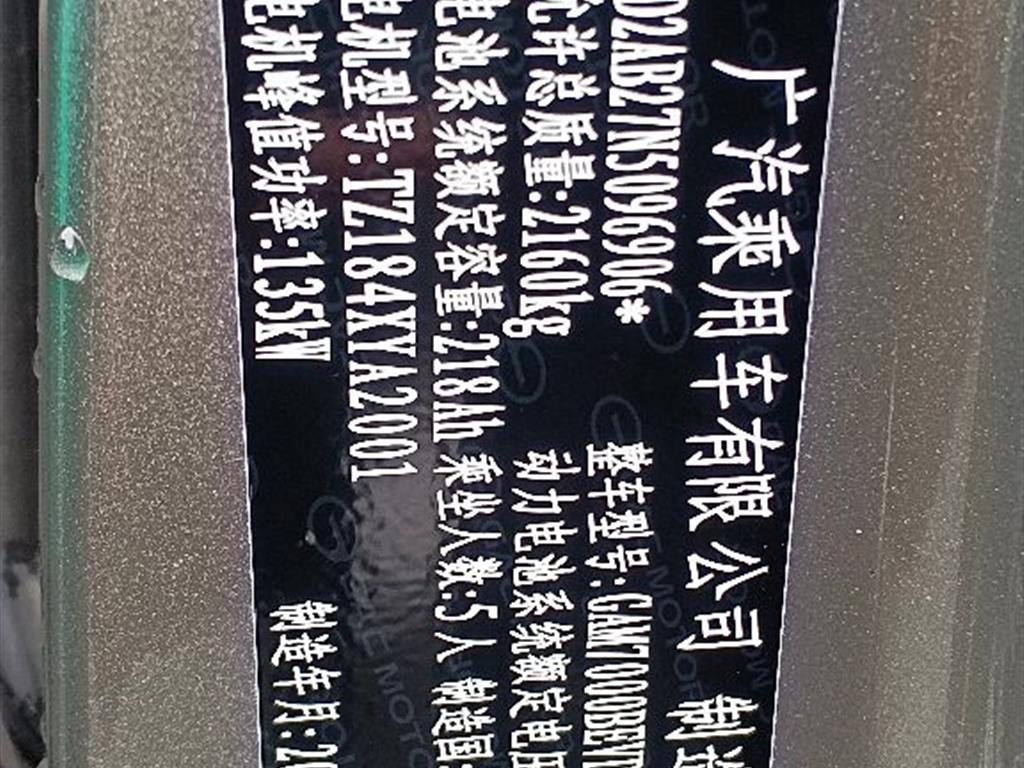 广汽乘用车有限公司 制造
D2AB27N5096906* 整车型号:GAM7000BEV
允许总质量:2160kg 动力电池系统额定电压
电池系统额定容量:218Ah 乘坐人数:5人 制造国:
电机型号:TZ184XYA2001
电机峰值功率:135kW 制造年月:20